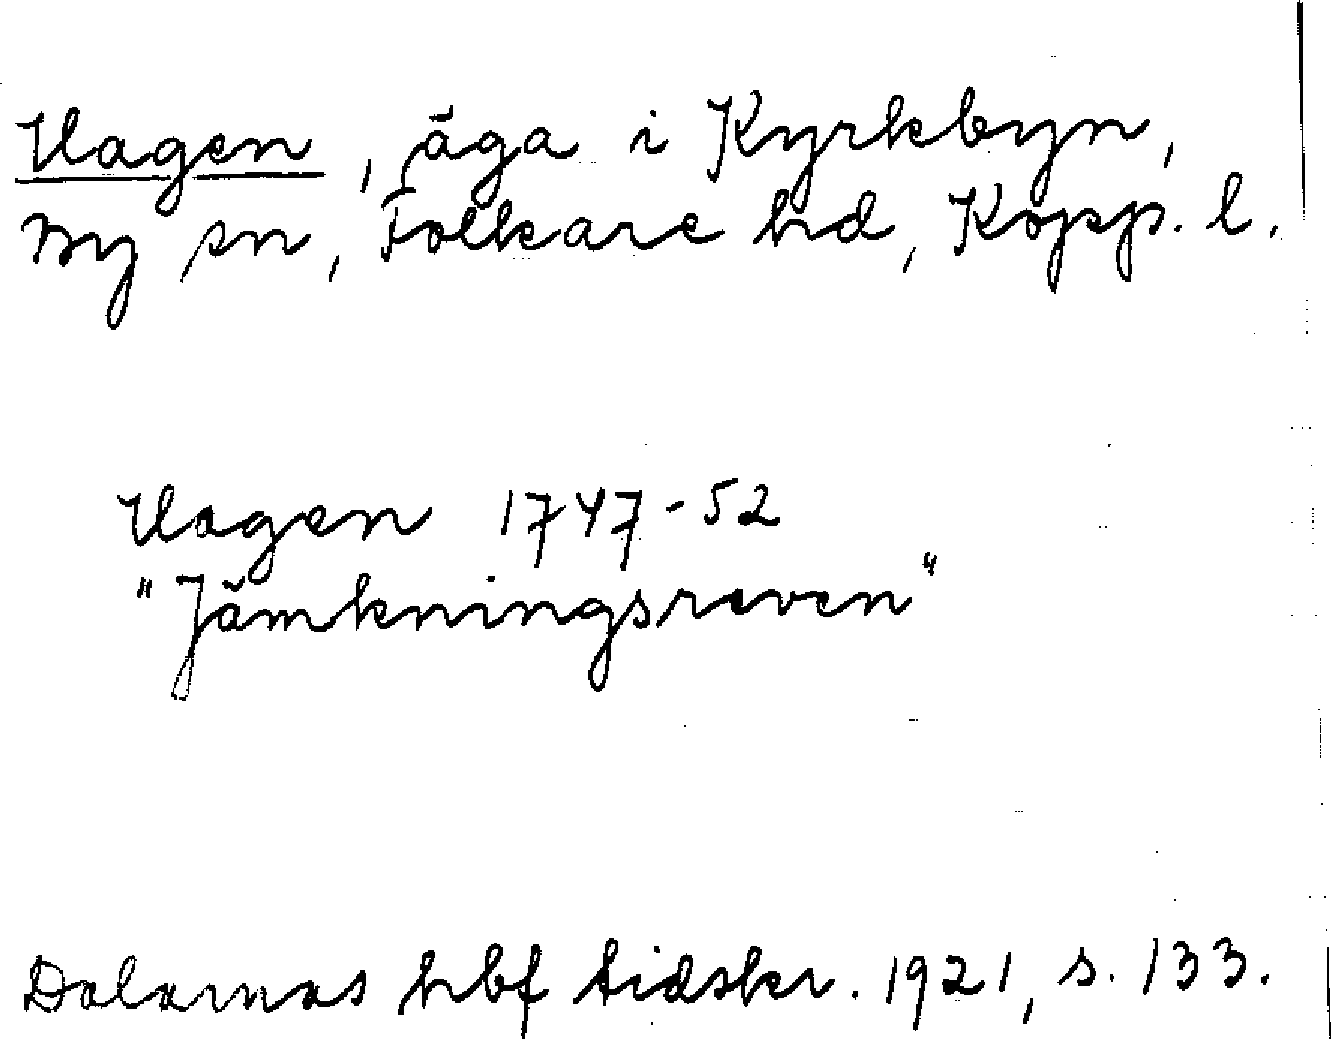 Vagen, äga i Kyrkbyn,
By sn, Folkare hd, Kopp. l.
Vagen 1747-52
"Jämkningsreven"
Dalarnas hbf tidskr. 1921, s. 133.